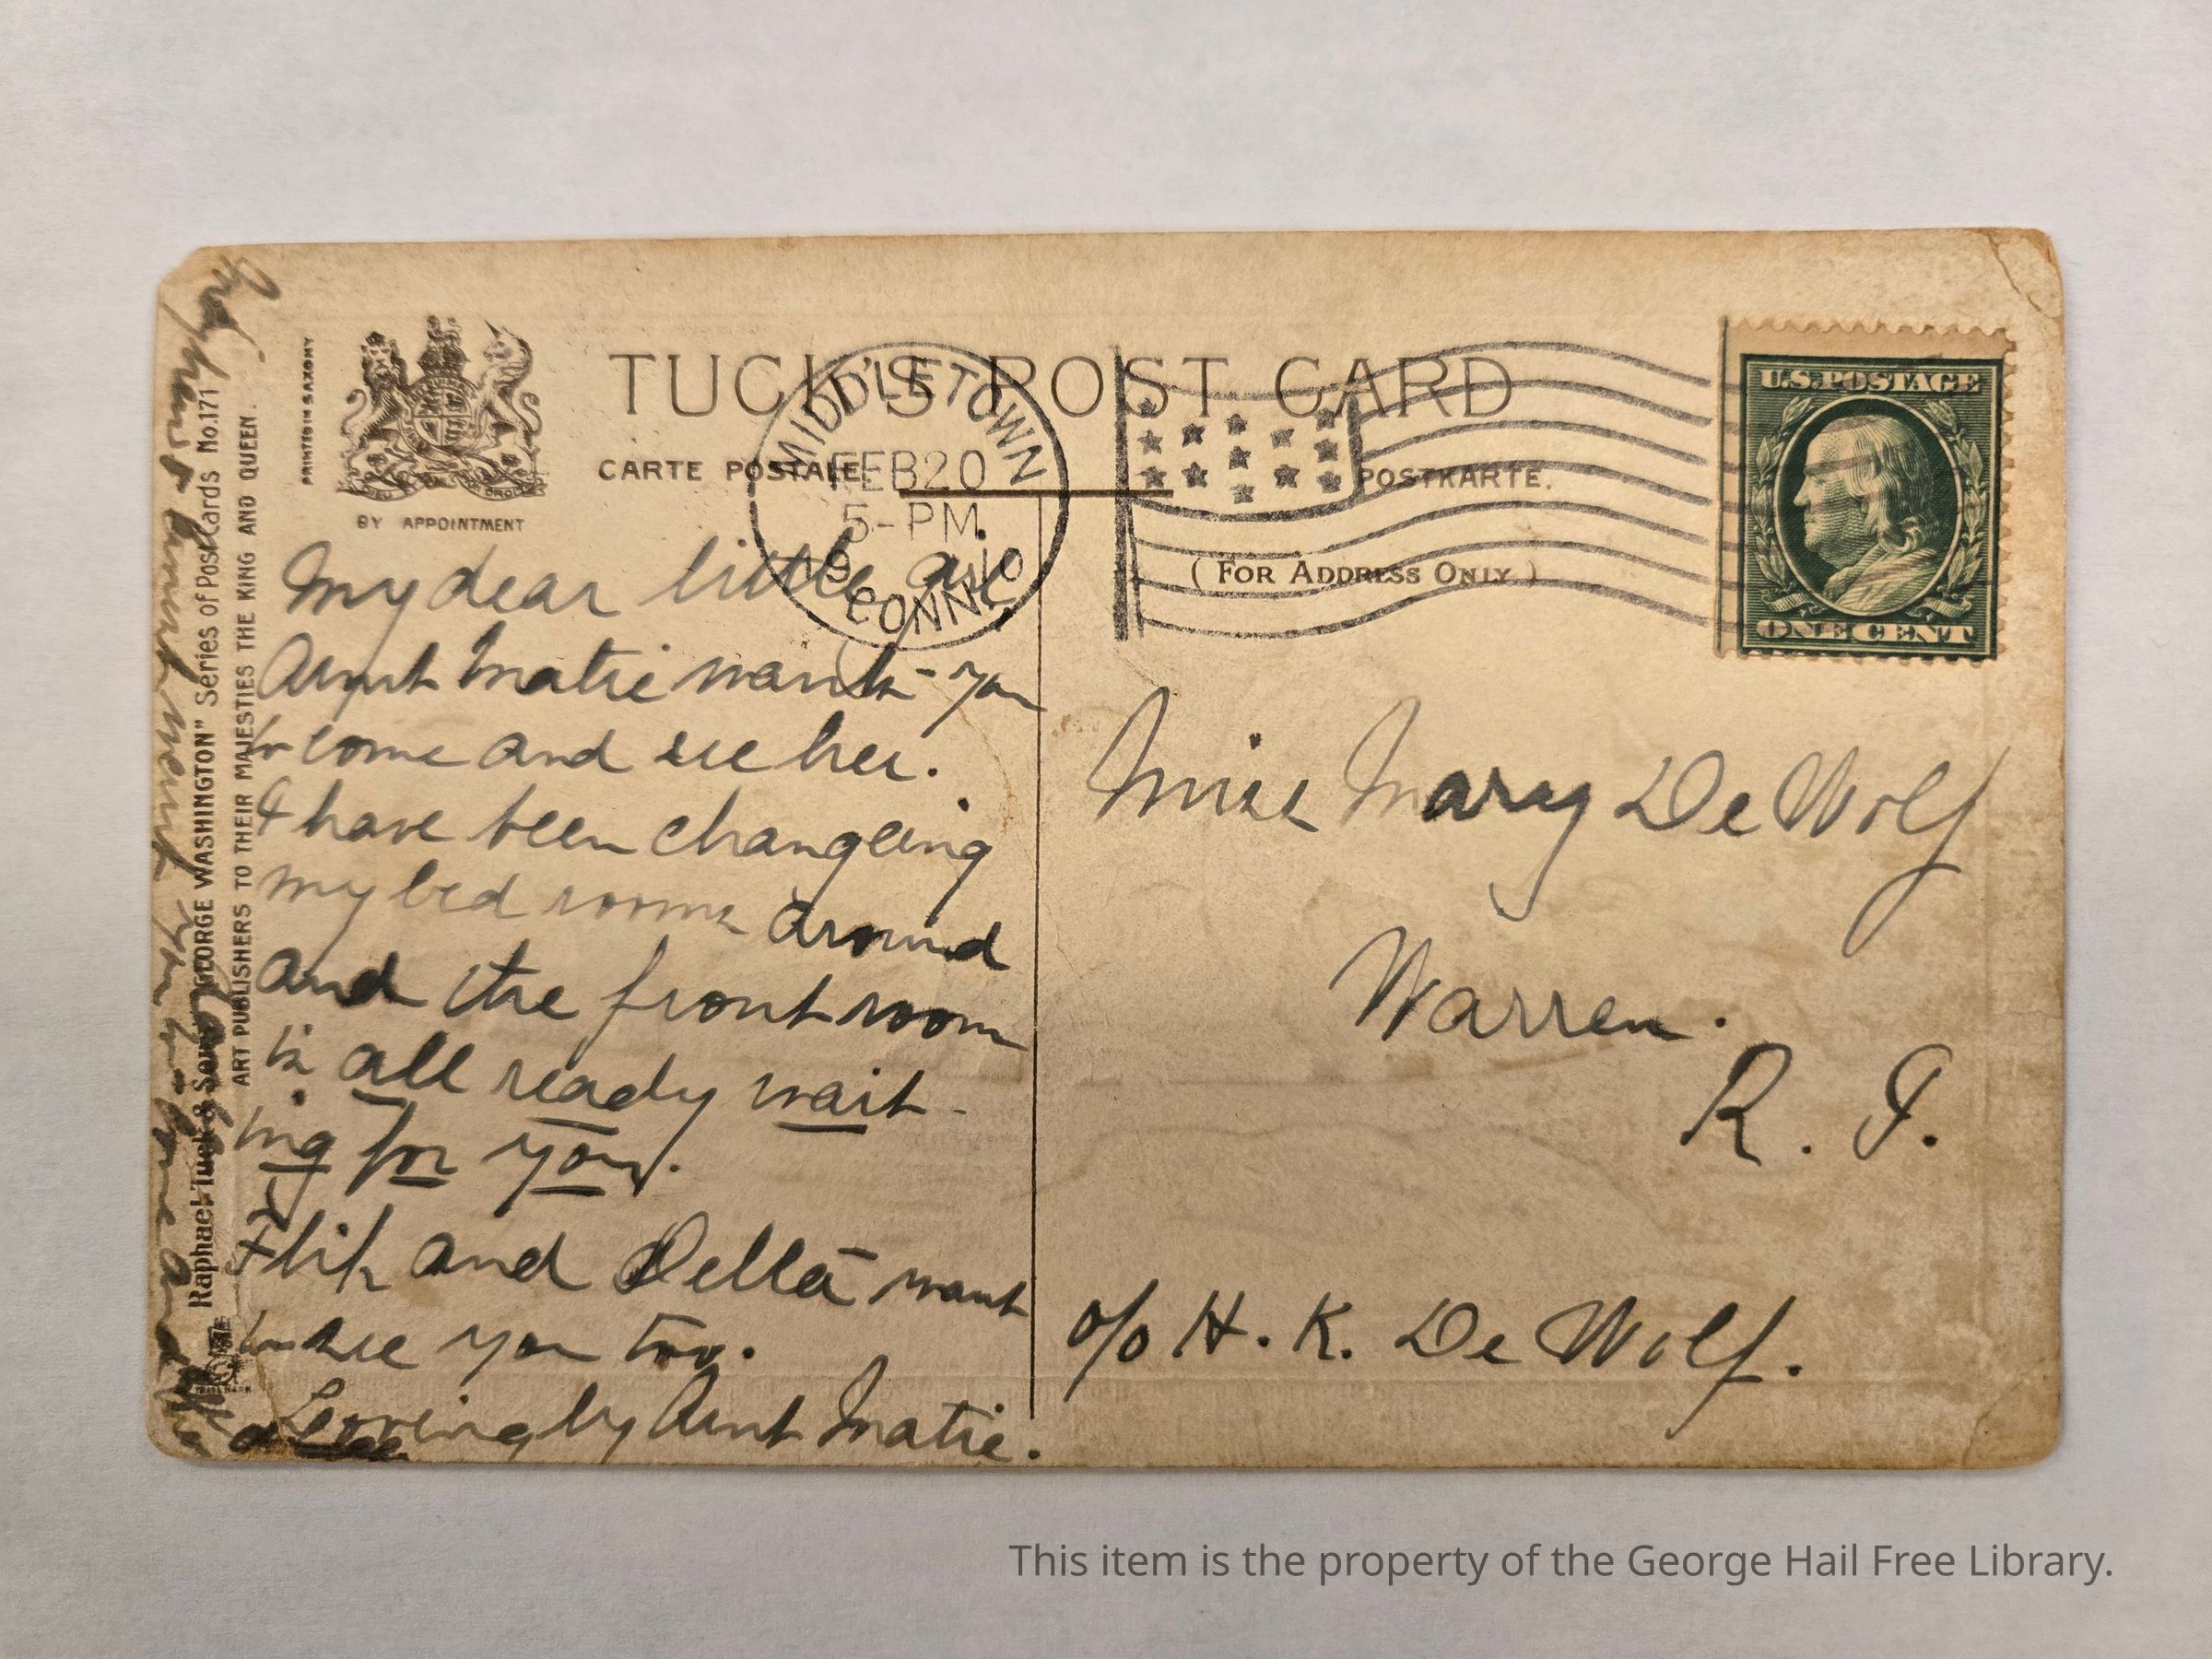 TUCK'S POST CARD
CARTE POSTALE.
POSTKARTE.
(FOR ADDRESS ONLY.)
BY APPOINTMENT
PRINTED IN SAXONY
MIDDLETOWN
FEB 20
5-PM
1910
CONN.
U.S. POSTAGE
ONE CENT
My dear little girl
Aunt Matie wants you
to come and see her.
I have been changeing
my bed rooms around
and the front room
is all ready wait-
ing for you.
and Della want
to see you too.
Lovingly Aunt Matie.
Miss Mary De Wolf
Warren.
R. I.
c/o H. K. De Wolf.
Raphael Tuck & Sons' "GEORGE WASHINGTON" Series of PostCards No. 171
ART PUBLISHERS TO THEIR MAJESTIES THE KING AND QUEEN.
TRADE MARK
you to come and
This item is the property of the George Hail Free Library.